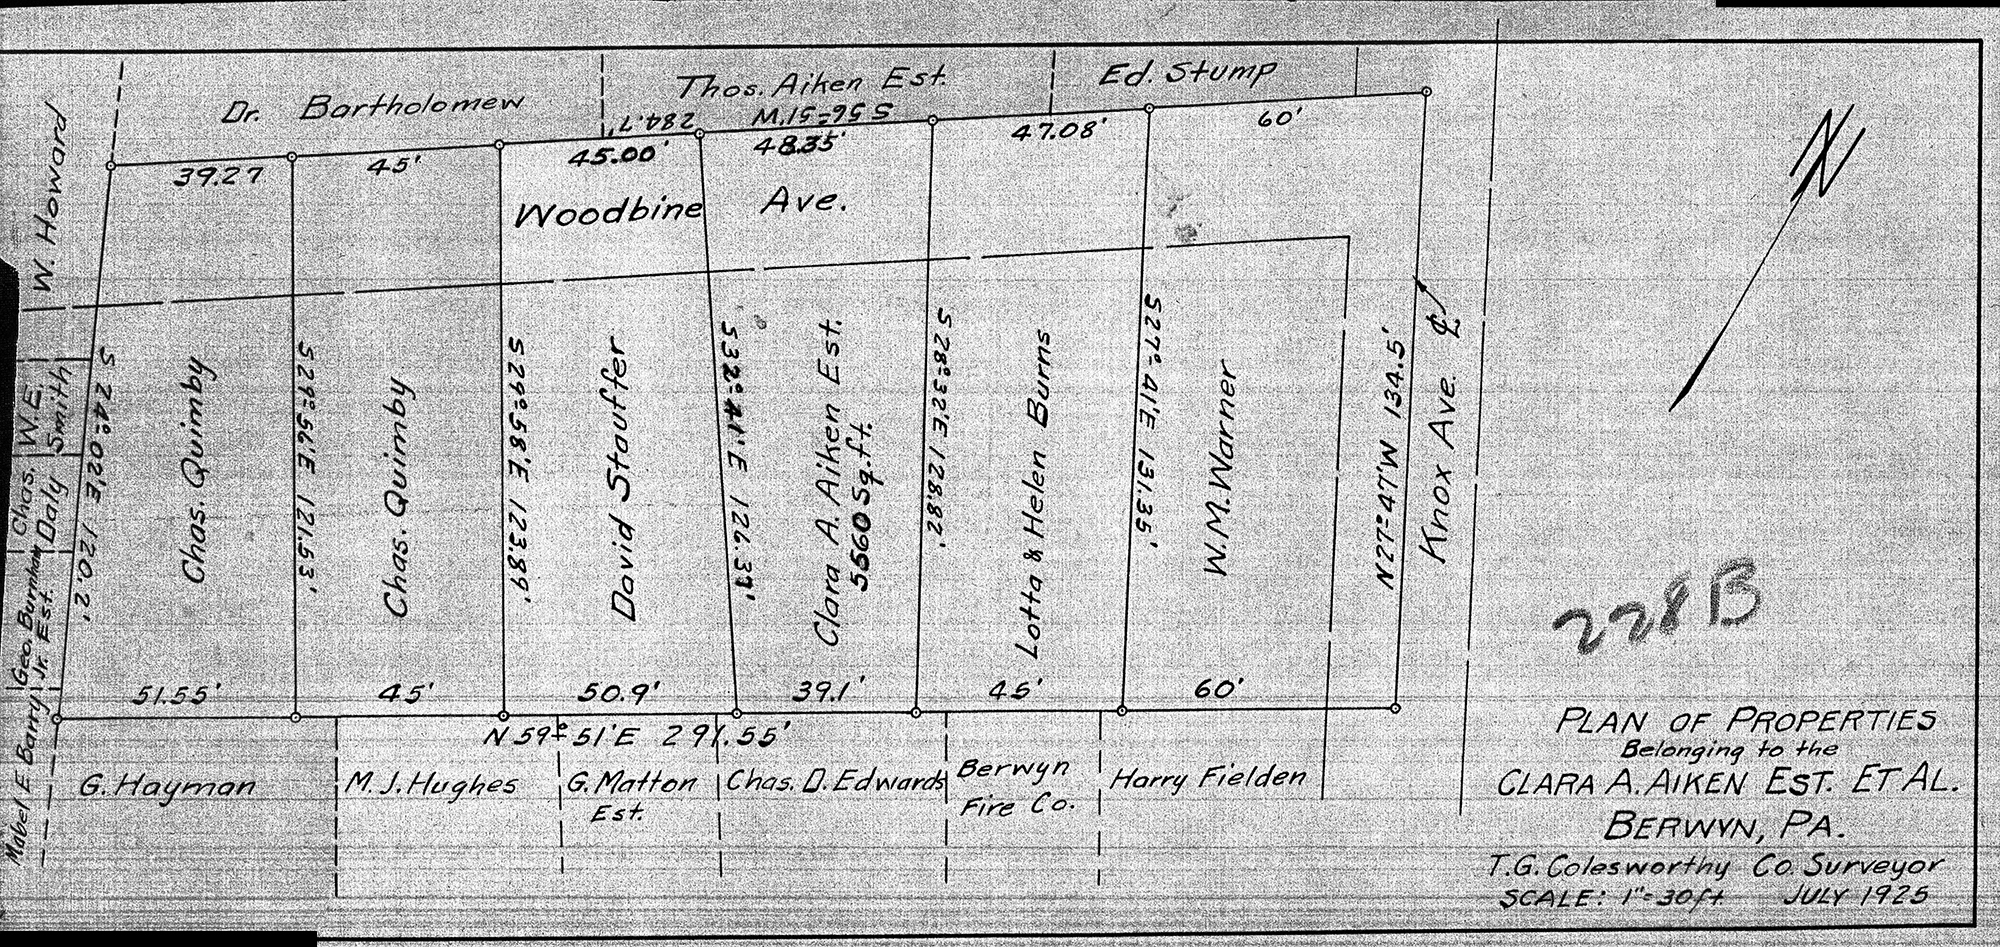 Dr. Bartholomew
Thos. Aiken Est.
Ed. Stump
284.7'
S 56°-51'W
39.27
45'
45.00'
48.35'
47.08'
60'
Woodbine Ave.
W. Howard
W.E. Smith
Chas. Daly
Geo. Burnham Jr. Est.
Mabel E Barry
S 24°-02'E 120.2'
Chas. Quimby
S29°-56'E 121.53'
Chas. Quimby
S29°-58'E 123.89'
David Stauffer
S32°-41'E
Clara A. Aiken Est.
5560 Sq.ft.
S 28°-32'E 128.82'
Lotta & Helen Burns
S27°-41'E 131.35'
W.M. Warner
N27°-47'W 134.5'
Knox Ave.
51.55'
45'
50.9'
39.1'
45'
60'
N 59°-51'E 291.55'
G. Hayman
M. J. Hughes
G. Matton
Est.
Chas. D. Edwards
Berwyn
Fire Co.
Harry Fielden
N
228B
PLAN OF PROPERTIES
Belonging to the
CLARA A. AIKEN EST. ET AL.
BERWYN, PA.
T.G. Colesworthy Co. Surveyor
SCALE: 1"=30ft JULY 1925